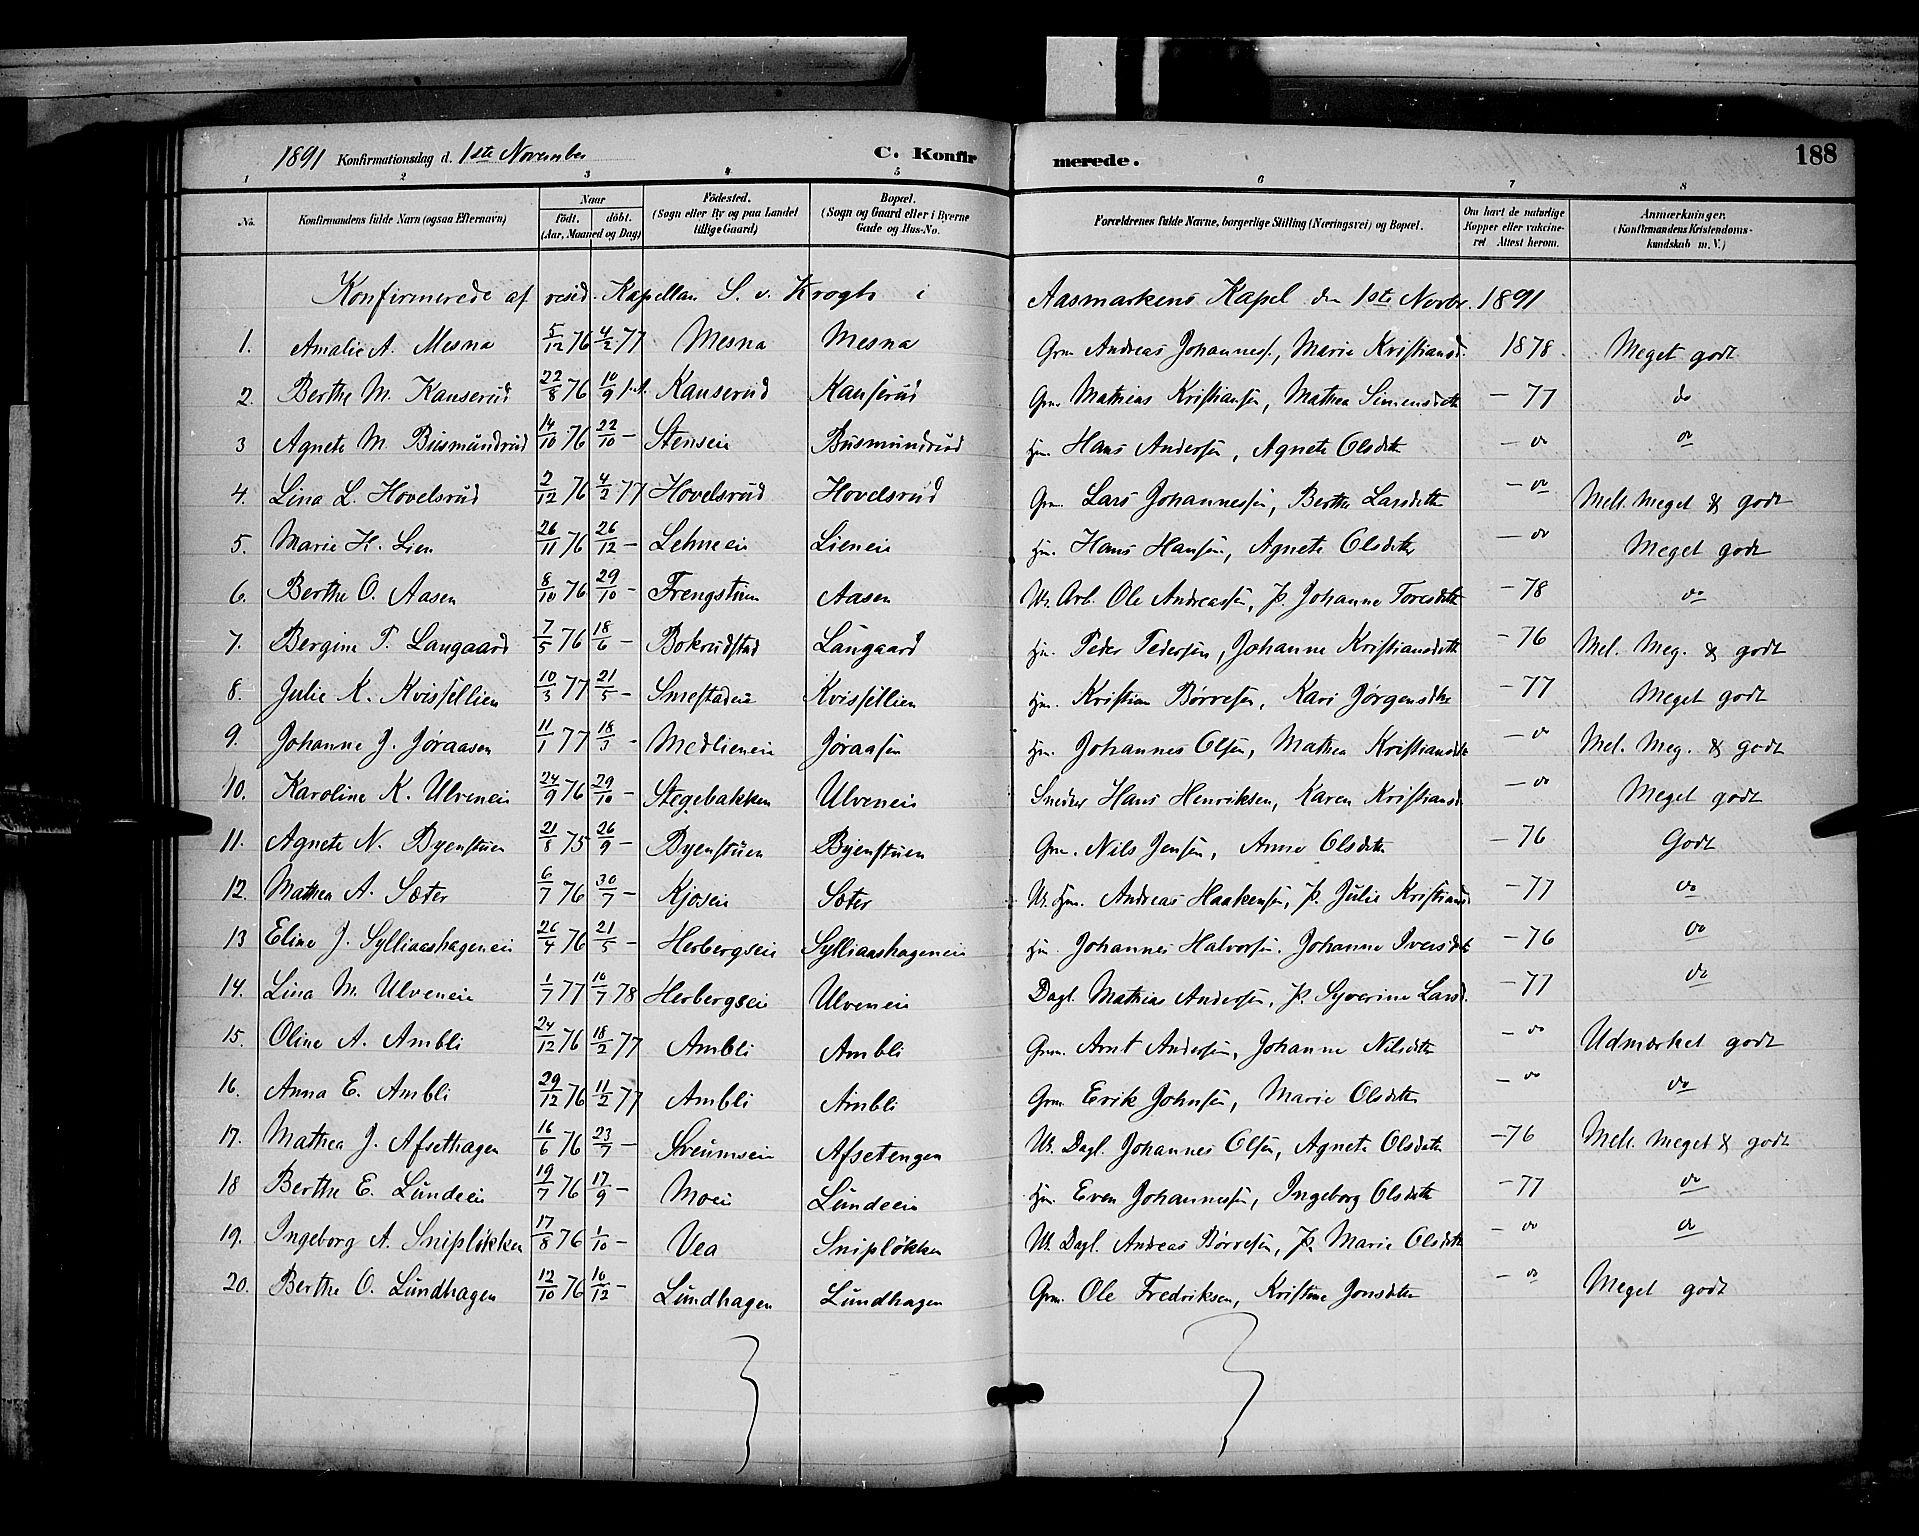 1891 Konfirmationsdag d. 1ste November C. Konfirmerede. 188
1 2 3 4 5 6 7 8
No. Konfirmandens fulde Navn (ogsaa Efternavn) Naar født. døbt. (Aar, Maaned og Dag) Fødested. (Sogn eller By og paa Landet tillige Gaard) Bopæl. (Sogn og Gaard eller i Byerne Gade og Hus-No. Forældrenes fulde Navne, borgerlige Stilling (Næringsvei) og Bopæl. Om havt de naturlige Kopper eller vakcineret Attest herom. Anmærkninger. (Konfirmandens Kristendomskundskab m. V.)
Konfirmerede af resid. Kapellan S. v. Krogh i Aasmarkens Kapel den 1ste Novbr. 1891
1. Amalie A. Mesna 5/12 76 4/2 77 Mesna Mesna Grm. Andreas Johanness., Marie Kristiansd. 1878. Meget godt
2. Berthe M. Kauserud 22/8 76 10/9 s.A. Kauserud Kauserud Grm. Mathias Kristiansen, Mathea Simensdatter - 77 do
3 Agnete M. Busmundrud 14/10 76 22/10 - Stenseie Busmundrud Hm. Hans Andersen, Agnete Olsdtr - do do
4. Lina L. Hovelsrud 2/12 76 4/2 77 Hovelsrud Hovelsrud Grm. Lars Johannessen, Berthe Larsdtr - do Mell. Meget & godt
5. Marie H. Lien 26/11 76 26/12 - Lehneeie Lieneie Hm. Hans Hansen, Agnete Olsdtr - do Meget godt
6. Berthe O. Aasen 8/10 76 29/10 - Frengstuen Aasen U. Arb. Ole Andreassen, P. Johanne Toresdtr - 78 do
7. Bergine P. Langaard 7/5 76 18/6 - Bokrudstad Langaard Hm. Peder Pedersen, Johanne Kristiansdtr - 76 Mel. Meg. & godt
8. Julie K. Kvissellien 10/3 77 21/5 - Smestadeie Kvissellien Hm. Kristian Børresen, Kari Jørgensdtr - 77 Meget godt
9. Johanne J. Jøraasen 11/1 77 18/3 - Medlieneie Jøraasen Hm. Johannes Olsen, Mathea Kristiansdtr - do Mel. Meg. & godt
10. Karoline K. Ulveneie 24/9 76 29/10 - Stegebakken Ulveneie Snedker Hans Henriksen, Karen Kristiansd. - do Meget godt
11. Agnete N. Byenstuen 21/8 75 26/9 - Byenstuen Byenstuen Grm. Nils Jensen, Anne Olsdtr - 76 Godt
12. Mathea A. Sæter 6/7 76 30/7 - Kjoseie Sæter U. Hm. Andreas Haakensen, P. Julie Kristiansd - 77 do
13 Eline J. Sylliaashageneie 26/4 76 21/5 - Herbergseie Sylliaashageneie Hm. Johannes Halvorsen, Johanne Iversdtr - 76 do
14. Lina M. Ulveneie 1/7 77 10/7 78 Herbergseie Ulveneie Dagl. Mathias Andersen, P. Syverine Larsd. - 77 do
15. Oline A. Ambli 24/12 76 18/2 77 Ambli Ambli Grm. Arnt Andersen, Johanne Nilsdtr - do Udmærket godt
16. Anna E. Ambli 29/12 76 11/2 77 Ambli Ambli Grm. Erik Johnsen, Marie Olsdtr - do do
17. Mathea J. Afsethagen 16/6 76 23/7 - Streumseie Afsetengen U. Dagl. Johannes Olsen, Agnete Olsdatr - 76 Mell. Meget & godt
18 Berthe E. Lundeeie 19/7 76 17/9 - Moeie Lundeeie Hm. Even Johannessen, Ingeborg Olsdtr - 77 do
19. Ingeborg A. Snipløkken 17/8 76 1/10 - Vea Snipløkken U. Dagl. Andreas Børresen, P. Marie Olsdtr - do do
20. Berthe O. Lundhagen 12/10 76 10/12 - Lundhagen Lundhagen Grm. Ole Fredriksen, Kristine Jonsdtr - do Meget godt